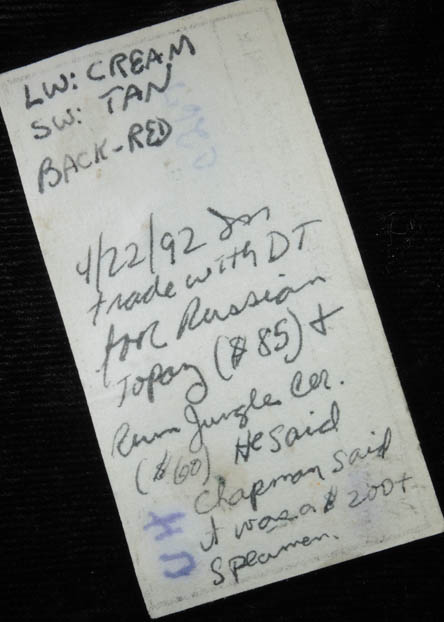 LW: CREAM
SW: TAN
BACK-RED
4/22/92 In
trade with DT
for Russian
Topaz ($85) +
Rum Jungle Cer.
($60) He said
Chapman said
it was a $200+
specimen.